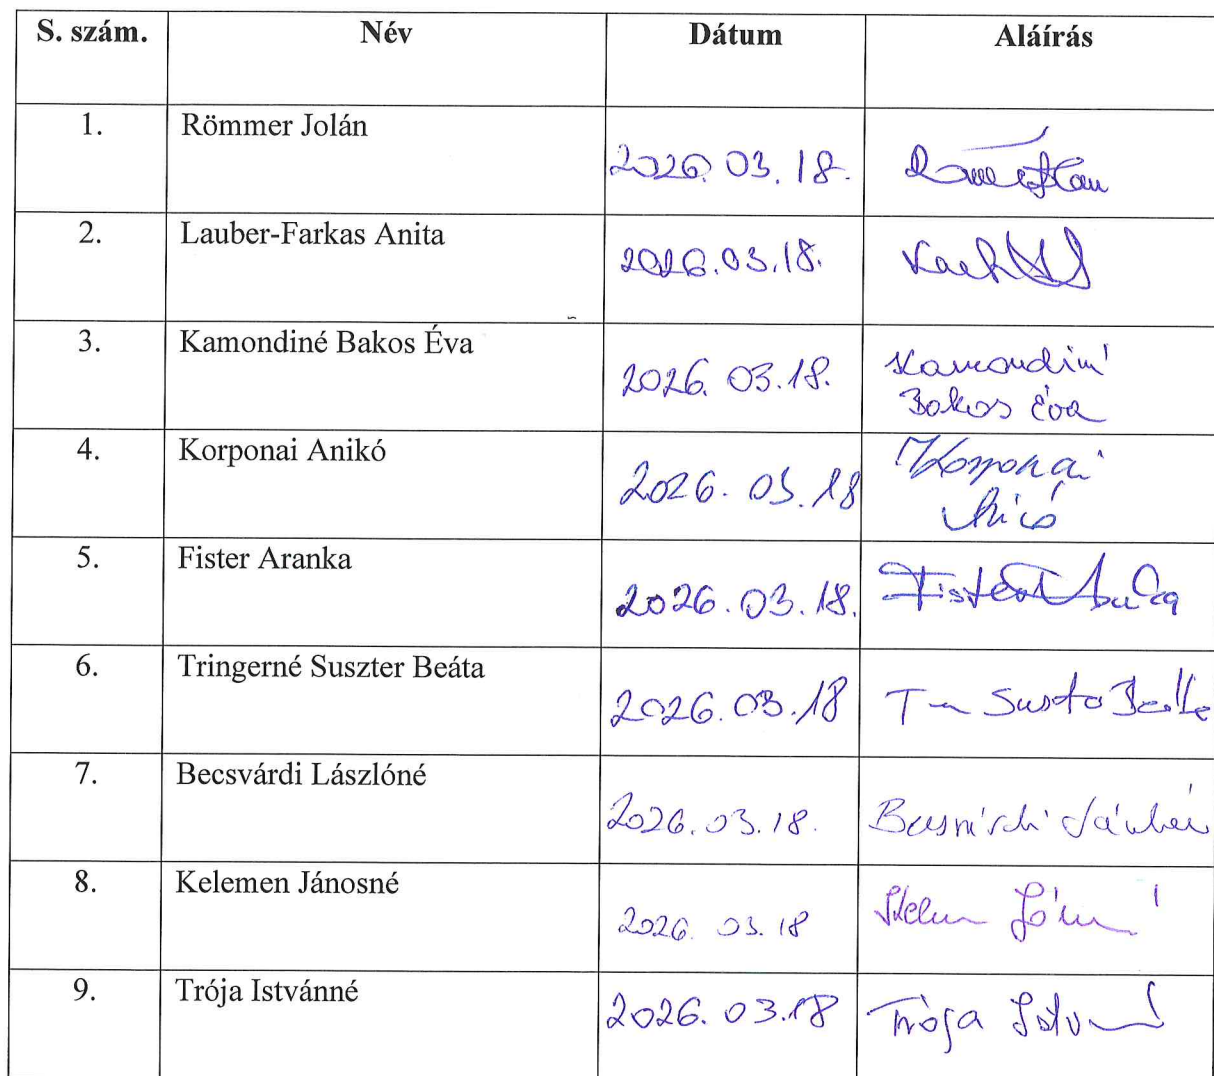 S. szám. Név Dátum Aláírás
1. Römmer Jolán
2026. 03. 18.
2. Lauber-Farkas Anita
2026.03.18.
3. Kamondiné Bakos Éva
2026. 03.18. Kamondiné
Bakos Éva
4. Korponai Anikó
2026. 03. 18 Korponai
Anikó
5. Fister Aranka
2026.03.18. Fister
6. Tringerné Suszter Beáta
2026.03.18
7. Becsvárdi Lászlóné
2026.03.18.
8. Kelemen Jánosné
2026. 03. 18
9. Trója Istvánné
2026. 03.18 Trója